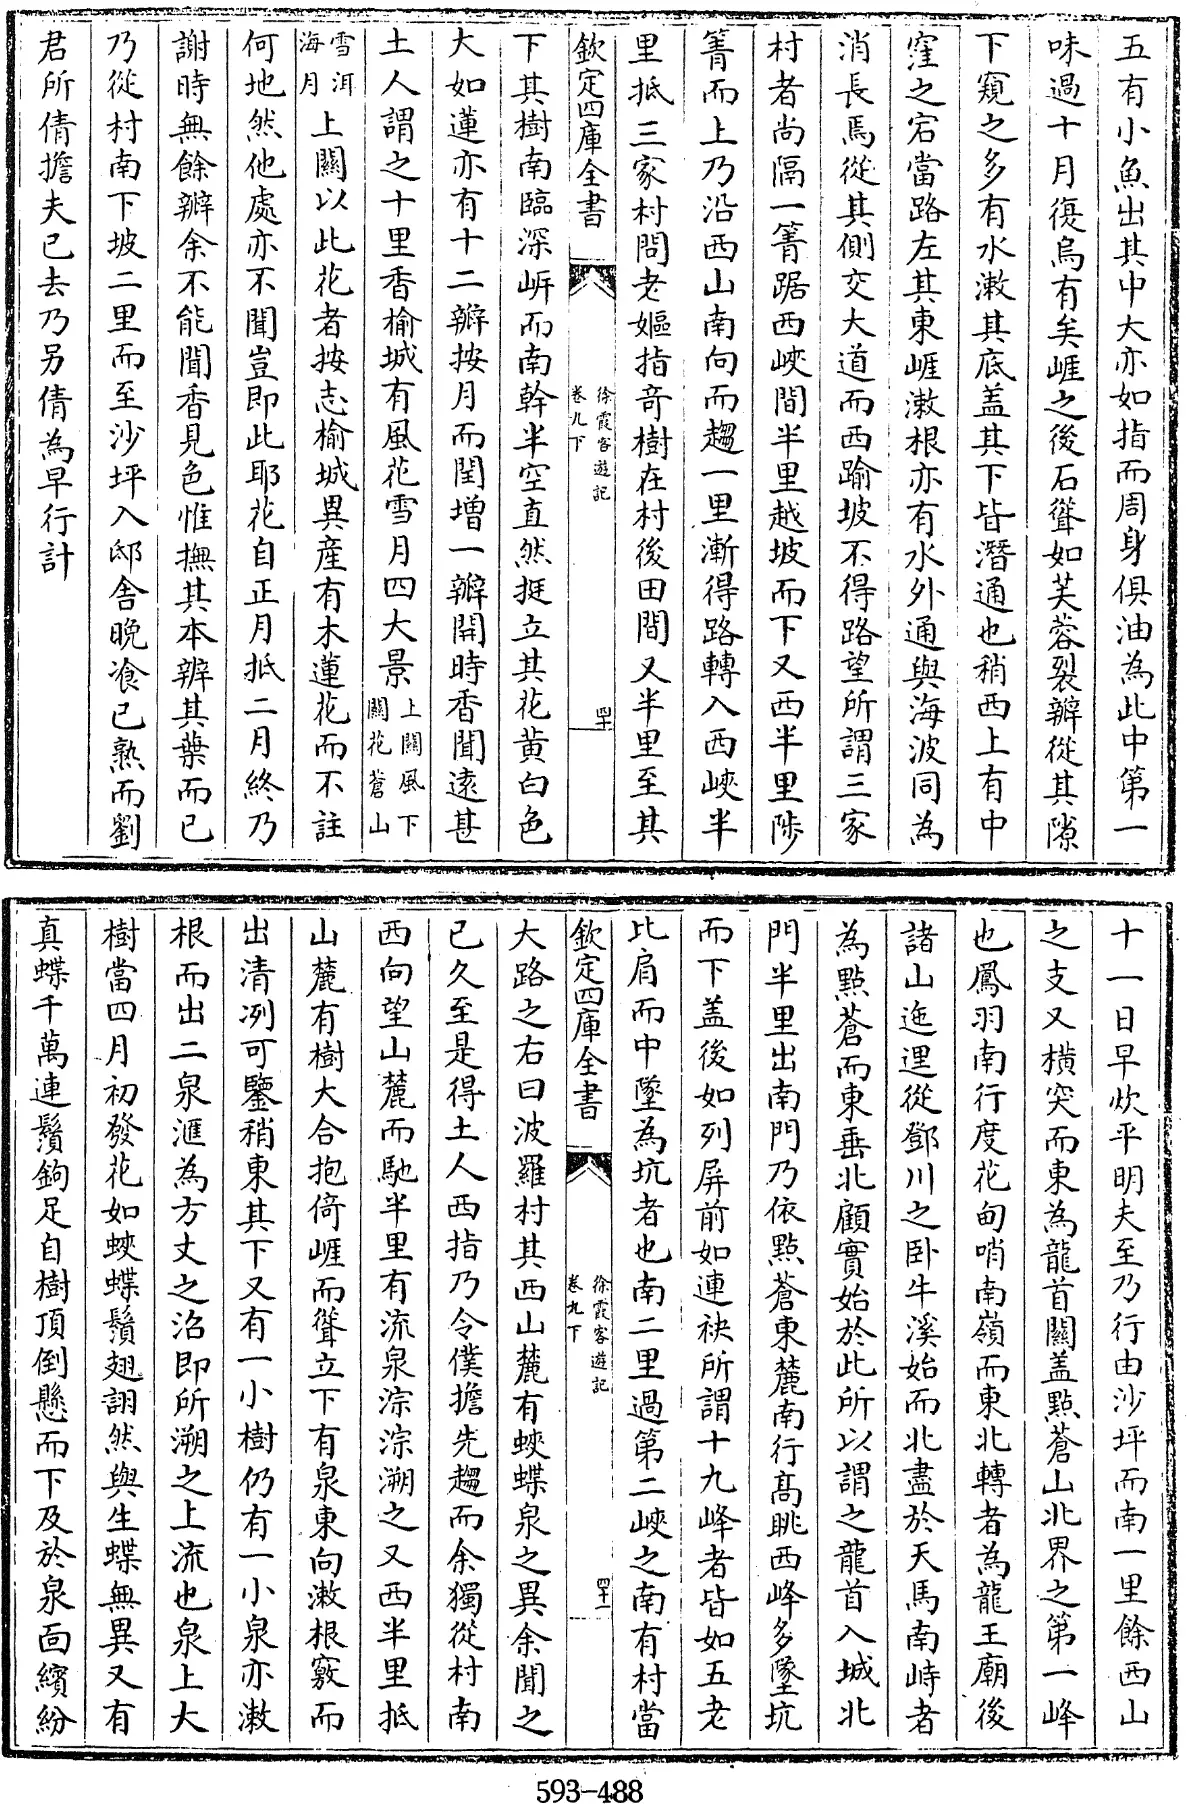 五有小魚出其中大亦如指而周身俱油為此中第一
味過十月復烏有矣崕之後石聳如芙蓉裂瓣從其隙
下窺之多有水漱其底盖其下皆潛通也稍西上有中
窪之宕當路左其東崕漱根亦有水外通與海波同為
消長焉從其側交大道而西踰坡不得路望所謂三家
村者尚隔一箐踞西峽間半里越坡而下又西半里陟
箐而上乃沿西山南向而趨一里漸得路轉入西峽半
里抵三家村問老嫗指竒樹在村後田間又半里至其
欽定四庫全書
徐霞客遊記
卷九下
四十
下其樹南臨深岍而南幹半空直然挺立其花黄白色
大如蓮亦有十二瓣按月而閏增一瓣開時香聞遠甚
土人謂之十里香榆城有風花雪月四大景上關風下
關花蒼山
雪洱
海月上關以此花者按志榆城異産有木蓮花而不註
何地然他處亦不聞豈即此耶花自正月抵二月終乃
謝時無餘瓣余不能聞香見色惟撫其本辨其葉而已
乃從村南下坡二里而至沙坪入邸舍晚飡已熟而劉
君所倩擔夫已去乃另倩為早行計
十一日早炊平明夫至乃行由沙坪而南一里餘西山
之支又横突而東為龍首關盖點蒼山北界之第一峰
也鳳羽南行度花甸哨南嶺而東北轉者為龍王廟後
諸山迤逦從鄧川之卧牛溪始而北盡於天馬南峙者
為點蒼而東垂北顧實始於此所以謂之龍首入城北
門半里出南門乃依點蒼東麓南行髙眺西峰多墜坑
而下盖後如列屏前如連袂所謂十九峰者皆如五老
比肩而中墜為坑者也南二里過第二峽之南有村當
欽定四庫全書
徐霞客遊記
卷九下
四十一
大路之右曰波羅村其西山麓有蛺蝶泉之異余聞之
已久至是得土人西指乃令僕擔先趨而余獨從村南
西向望山麓而馳半里有流泉淙淙溯之又西半里抵
山麓有樹大合抱倚崕而聳立下有泉東向漱根竅而
出清冽可鑒稍東其下又有一小樹仍有一小泉亦漱
根而出二泉滙為方丈之沼即所溯之上流也泉上大
樹當四月初發花如蛺蝶鬚翅栩然與生蝶無異又有
真蝶千萬連鬚鉤足自樹頂倒懸而下及於泉面繽紛
593-488